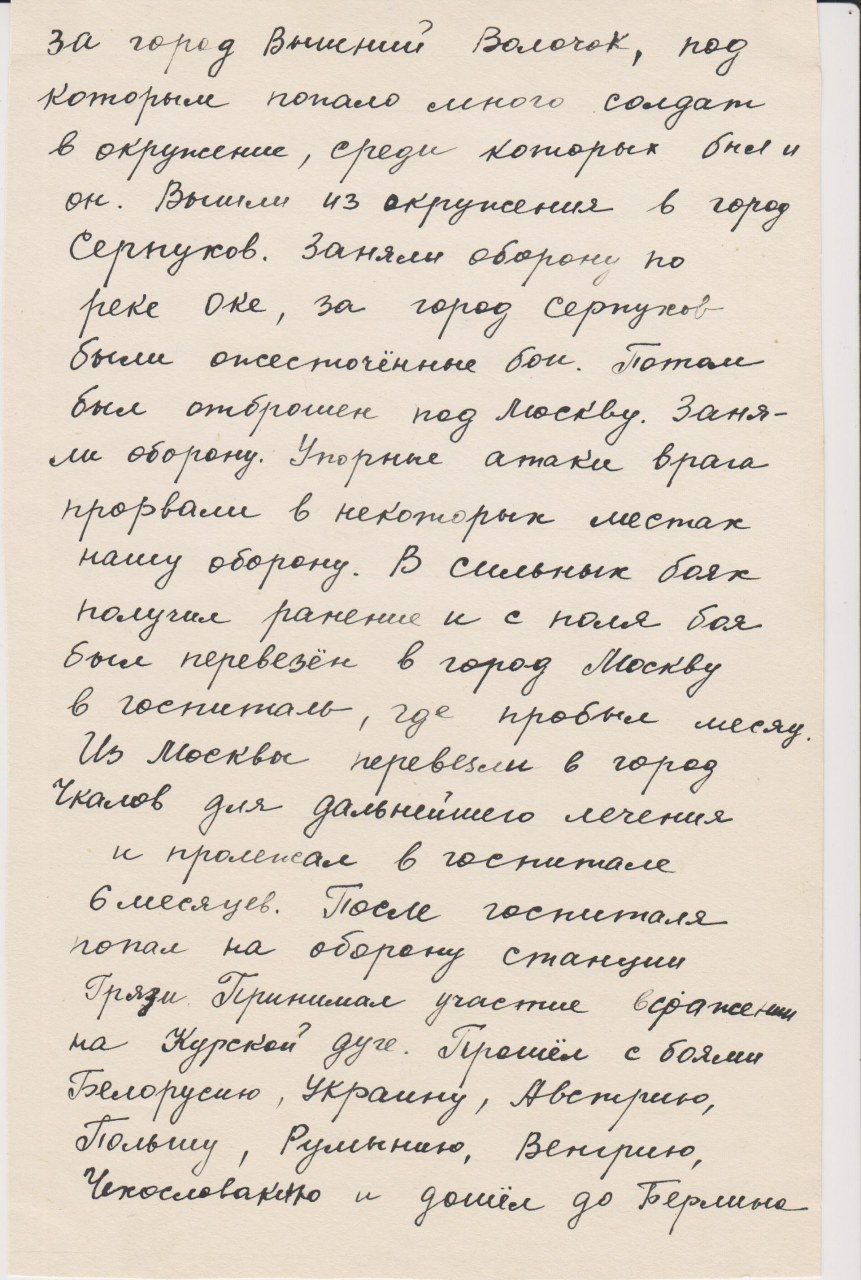 за город Вышний Волочок, под
которым попало много солдат
в окружение, среди которых был и
он. Вышли из окружения в город
Серпухов. Заняли оборону по
реке Оке, за город Серпухов
были ожесточённые бои. Потом
был отброшен под Москву. Заня-
ли оборону. Упорные атаки врага
прорвали в некоторых местах
нашу оборону. В сильных боях
получил ранение и с поля боя
был перевезён в город Москву
в госпиталь, где пробыл месяц.
Из Москвы перевезли в город
Чкалов для дальнейшего лечения
и пролежал в госпитале
6 месяцев. После госпиталя
попал на оборону станции
Грязи. Принимал участие в сражении
на Курской дуге. Прошёл с боями
Белорусию, Украину, Австрию,
Польшу, Румынию, Венгрию,
Чехословакию и дошёл до Берлина